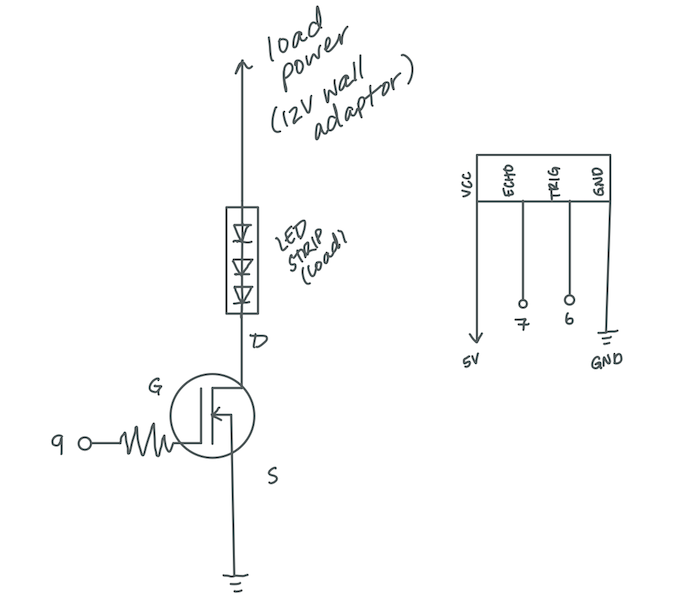 load
power
(12V wall
adaptor)
LED
STRIP
(load)
D
G
9
S
VCC
ECHO
TRIG
GND
7
6
5V
GND